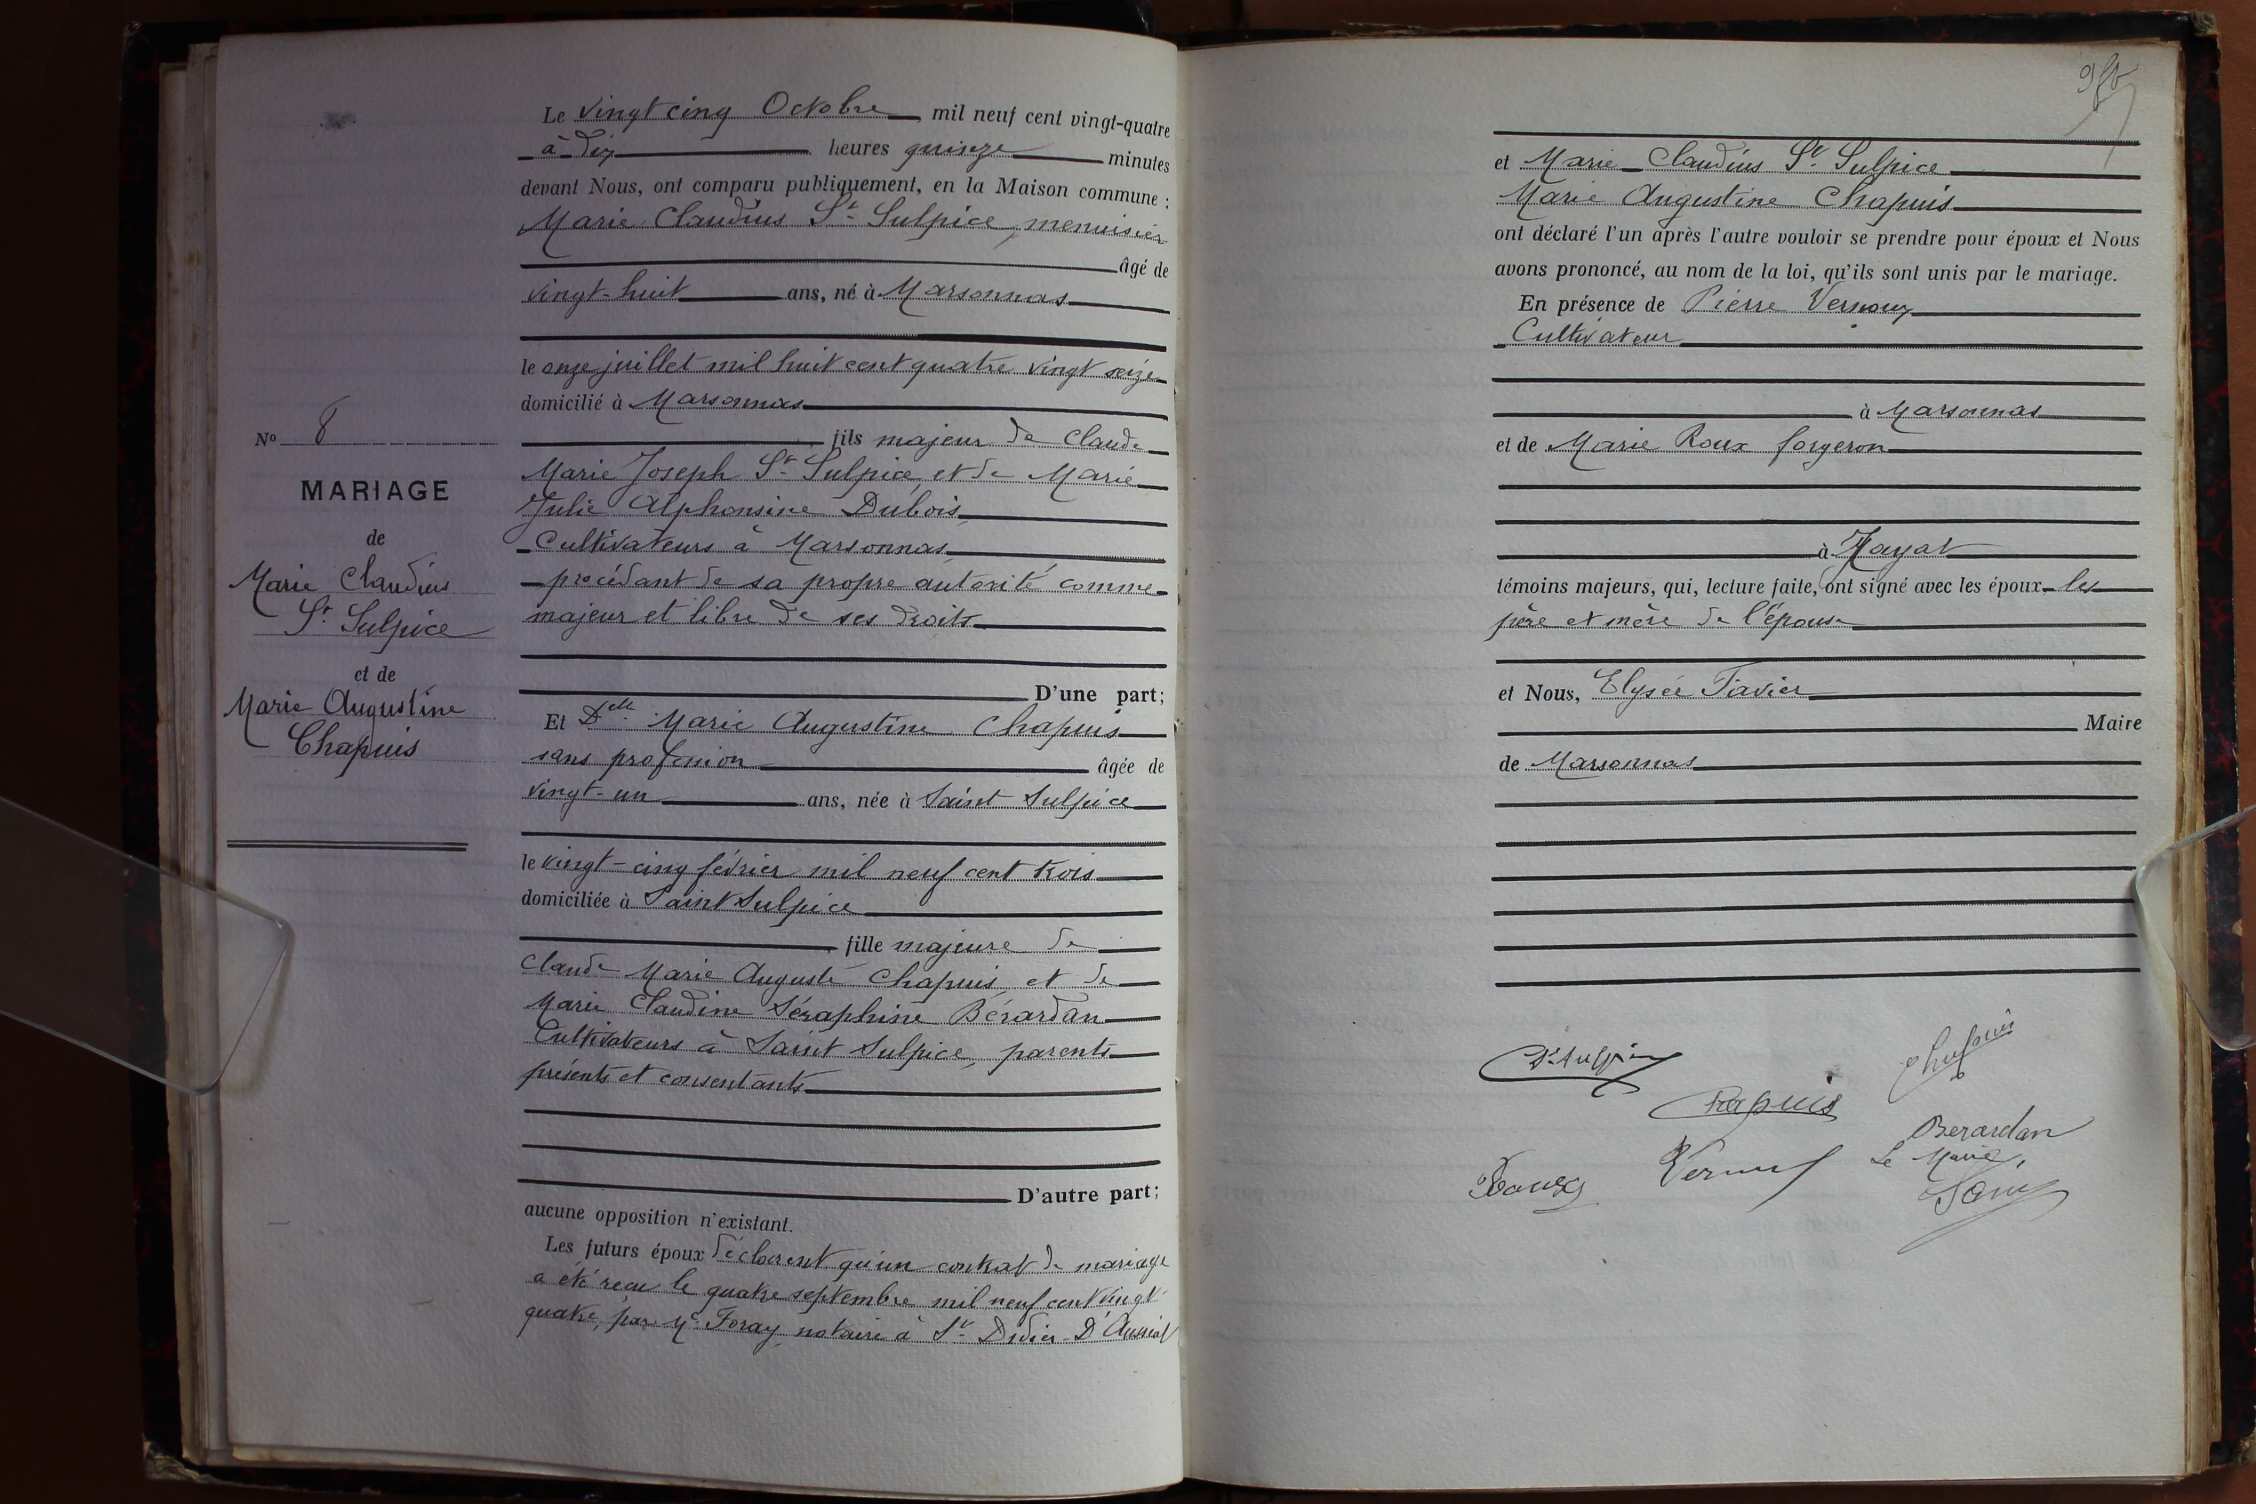 Le vingt cinq Octobre mil neuf cent vingt-quatre
à dix heures quinze minutes
devant Nous, ont comparu publiquement, en la Maison commune :
Marie Claudius St Sulpice, menuisier
âgé de
vingt-huit ans, né à Marsonnas
le onze juillet mil huit cent quatre vingt seize
domicilié à Marsonnas
fils majeur de Claude
Marie Joseph St Sulpice et de Marie
Julie Alphonsine Dubois,
Cultivateurs à Marsonnas
procédant de sa propre autorité comme
majeur et libre de ses droits
D'une part;
Et Delle Marie Augustine Chapuis
sans profession âgée de
vingt-un ans, née à Saint Sulpice
le vingt-cinq février mil neuf cent trois
domiciliée à Saint Sulpice
fille majeure de
Claude Marie Auguste Chapuis et de
Marie Claudine Séraphine Bérardan
Cultivateurs à Saint Sulpice, parents
présents et consentants
D'autre part;
aucune opposition n'existant.
Les futurs époux déclarent qu'un contrat de mariage
a été reçu le quatre septembre mil neuf cent vingt-
quatre, par Me Foray, notaire à St Didier-D'Aussiat
No 8
MARIAGE
de
Marie Claudius
St Sulpice
et de
Marie Augustine
Chapuis
et Marie Claudius St Sulpice
Marie Augustine Chapuis
ont déclaré l'un après l'autre vouloir se prendre pour époux et Nous
avons prononcé, au nom de la loi, qu'ils sont unis par le mariage.
En présence de Pierre Vernoux
Cultivateur
à Marsonnas
et de Marie Roux forgeron
à Jayat
témoins majeurs, qui, lecture faite, ont signé avec les époux les
père et mère de l'épouse
et Nous, Elysée Tavier
Maire
de Marsonnas
St Sulpice
Chapuis
Chapuis
Berardan
Roux
Vernoux
Le Maire,